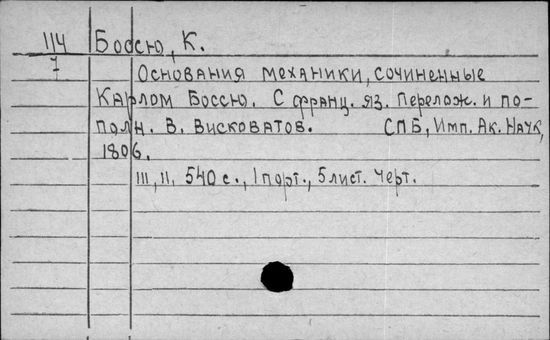 114 Боссю, К.
7
Основания механики, сочиненные
Карлом Боссю. С франц. яз. Перелож. и по-
полн. В. Висковатов. СПБ, Имп. Ак. Наук,
1806.
III, II, 540 с., 1 порт., 5 лист. черт.